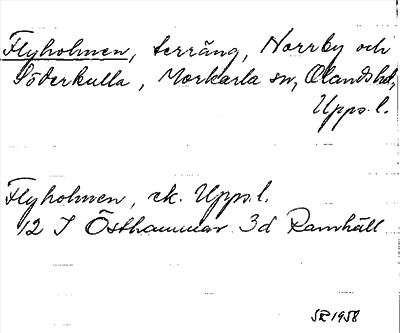 Flyholmen, terräng, Norrby och
Söderkulla, Morkarla sn, Olands hd,
Upps. l.
Flyholmen, ek. Upps. l.
12 I Östhammar 3d Ramhäll
SR 1958